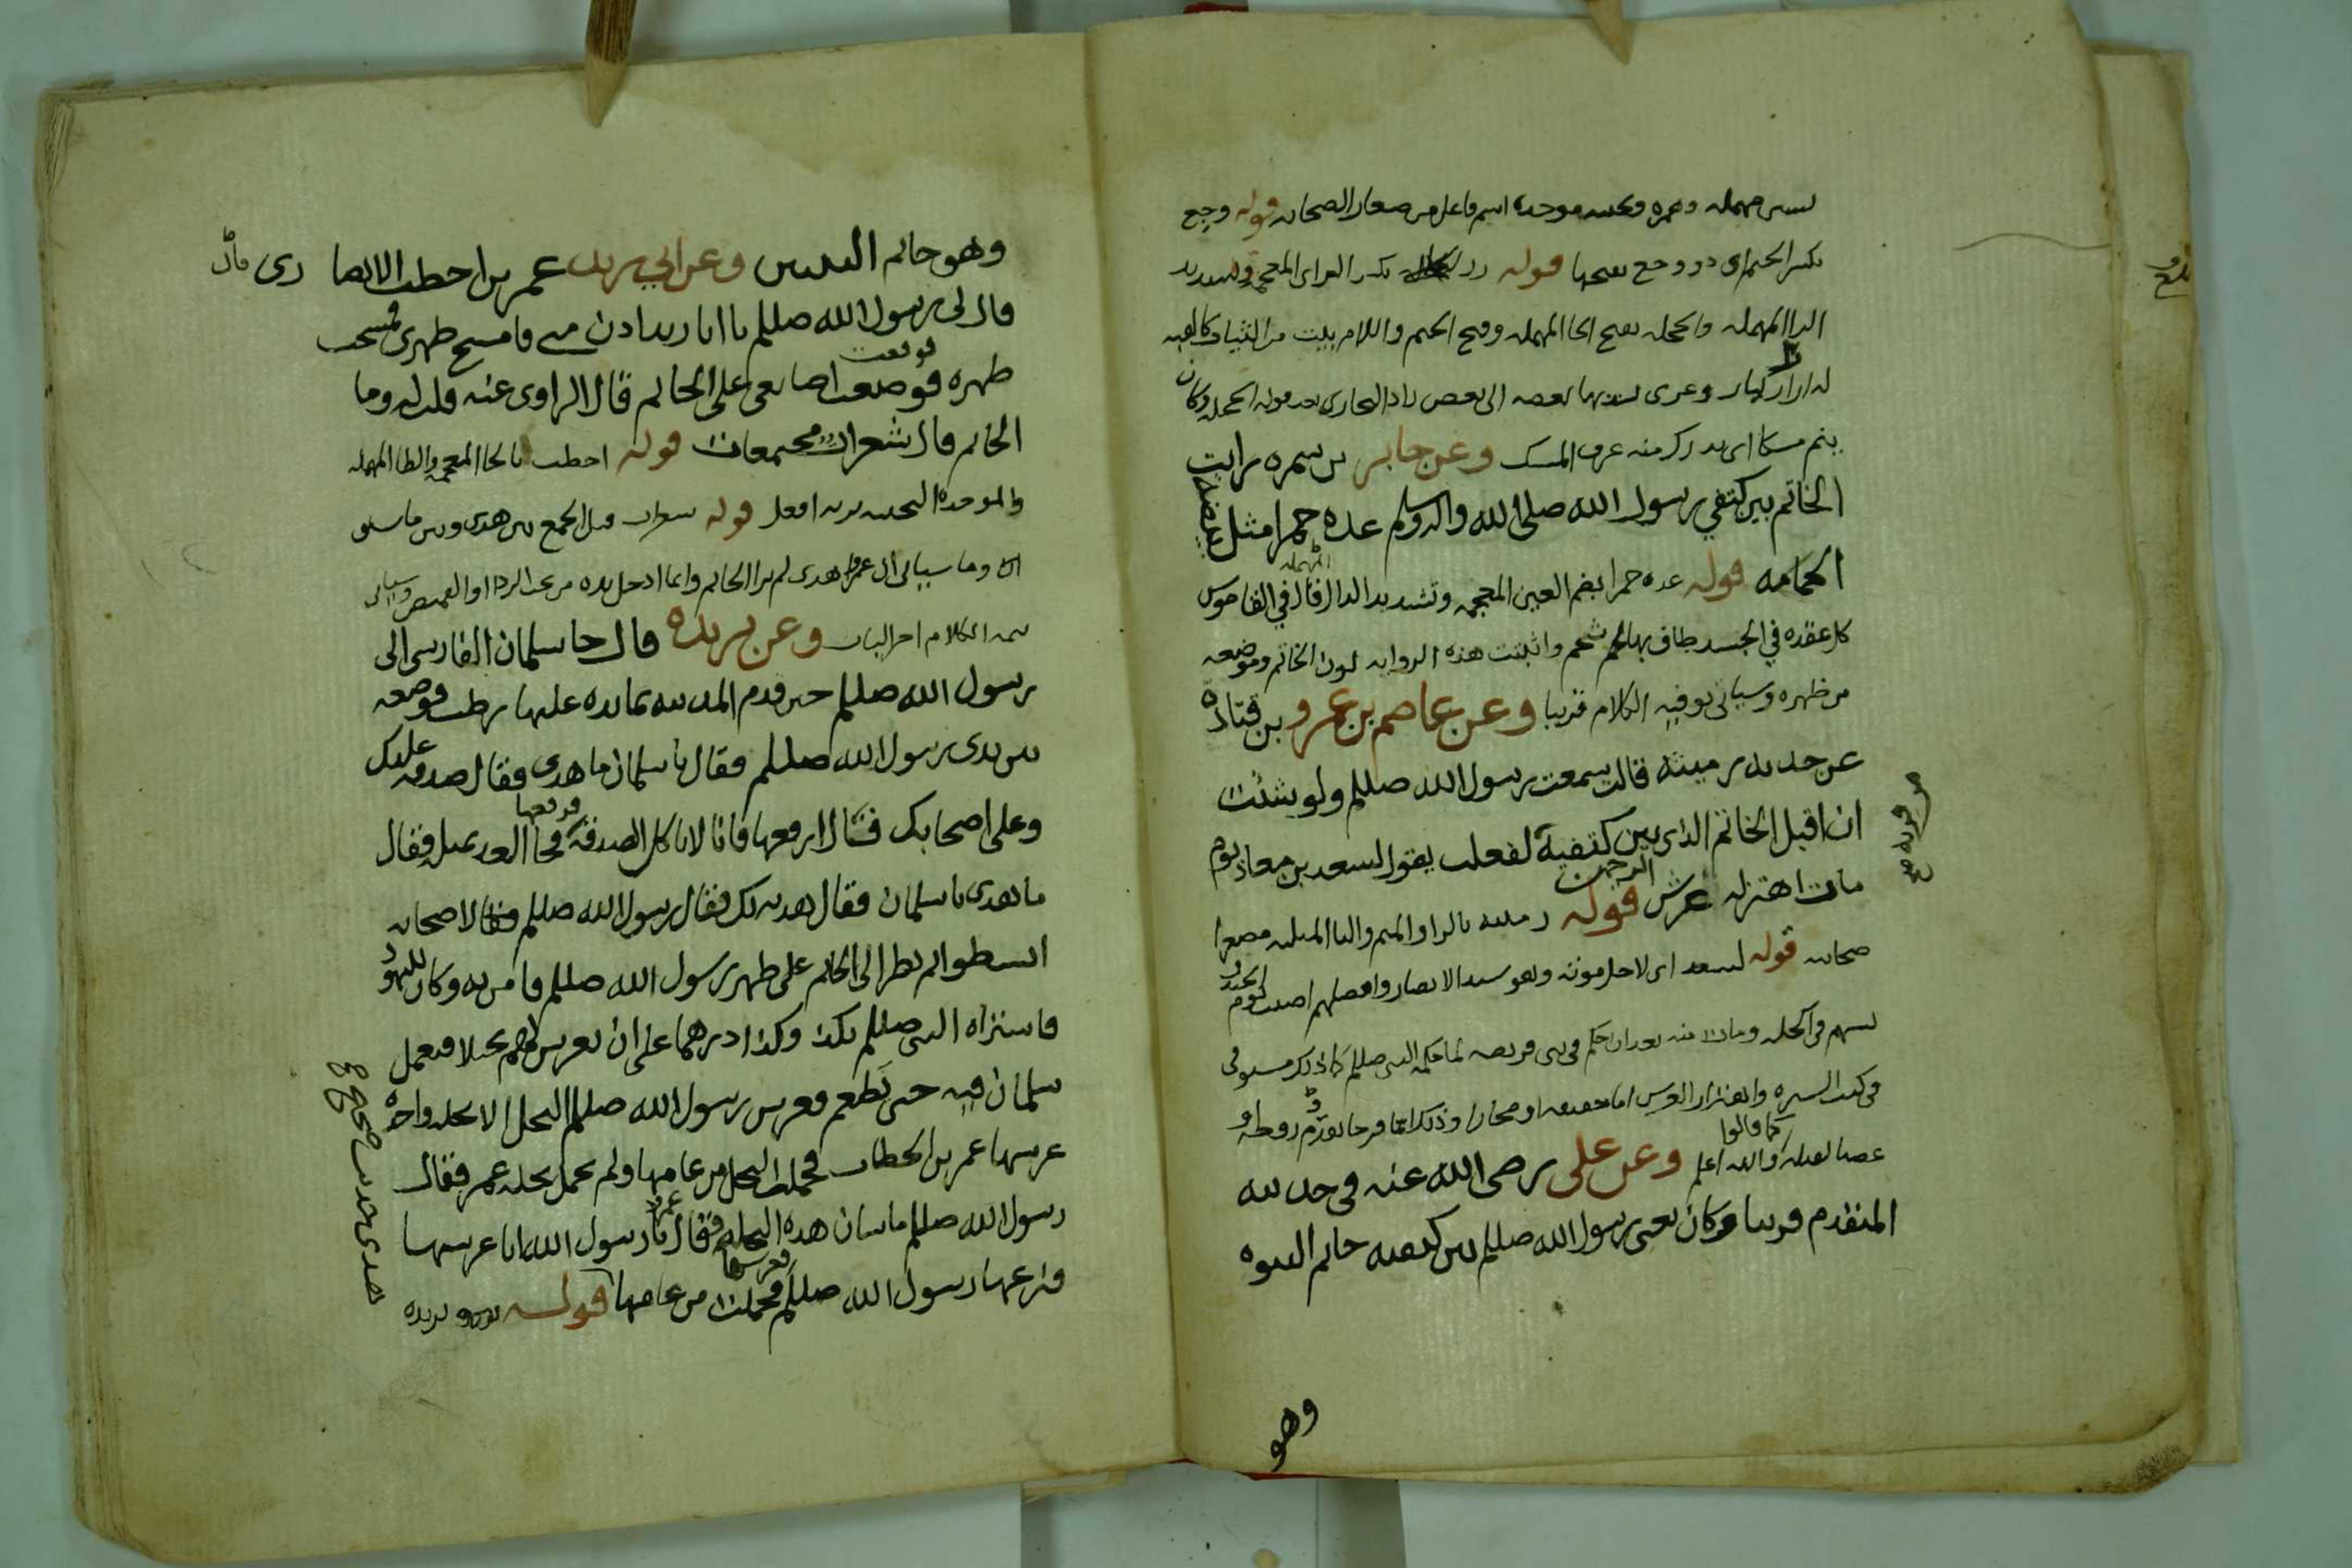 بسين مهمله وهمزه وتحتيه موحده اسم فاعل من صغار الصحابه قوله وجع
بكسر الجيم اى ذو وجع بفتحها قوله زر بكسر الزاى المعجمه وتشديد
الرا المهمله والحجله بفتح الحا المهمله وفتح الجيم واللام بيت من الثياب كالقبه
له ازرار كبار وعرى يشد بها بعضه الى بعض زاد البخارى بعد قوله الحجله وكان
ينم مسكا اى يدرك منه عرف المسك وعن جابر بن سمره رايت
الخاتم بين كتفي رسول الله صلى الله واله وسلم غده حمرا مثل بيضه
الحمامه قوله غده حمرا بضم الغين المعجمه وتشديد الدال المهمله قال في القاموس
كل عقده في الجسد طاف بها شحم واثبتت هذه الروايه لون الخاتم وموضعه
من ظهره وسياتى توفيه الكلام قريبا وعن عاصم بن عمرو بن قتاده
عن جدته رميثه قالت سمعت رسول الله صللم ولو شئت
ان اقبل الخاتم الذى بين كتفيه لفعلت يقول لسعد بن معاذ يوم
مات اهتز له عرش الرحمن قوله رميثه بالرا والميم واليا المثلثه مصغرا
صحابيه قوله لسعد اى لاجل موته وهو سيد الانصار وافضلهم اصيب يوم الخندق
بسهم فى اكحله ومات منه بعد ان حكم فى بنى قريظه بما حكمه النبى صللم كما ذلك مستوفى
فى كتب السيره واهتزاز العرش اما حقيقه او مجازا وذلك اما فرحا بقدوم روحه او
غضبا لقتله كما قالوا والله اعلم وعن على رضى الله عنه فى حديثه
المتقدم قريبا وكان يعنى رسول الله صللم بين كتفيه خاتم النبوه
وهو
وهو خاتم النبيين وعن ابي زيد عمر بن اخطب الانصارى قال
قال لى رسول الله صللم يا ابا زيد ادن منى فامسح ظهرى فمسحت
ظهره فوضعت اصابعى على الخاتم قال الراوى عنه قلت له وما
الخاتم قال شعرات مجتمعات قوله اخطب بالخا المعجمه والطا المهمله
والموحده التحتيه بزنه افعل قوله شعرات قيل الجمع بين هذى وبين ما سبق
وما سياتى ان عمر هذى لم ير الخاتم وانما ادخل يده من تحت الردا او القميص وسياتى
تتمه الكلام اخر الباب وعن بريده قال جا سلمان الفارسى الى
رسول الله صللم حين قدم المدينه بمايده عليها رطب فوضعه
بين يدى رسول الله صللم فقال يا سلمان ما هذى فقال صدقه عليك
وعلى اصحابك فقال ارفعها فانا لا ناكل الصدقه فرفعها فجا الغد بمثله فقال
ما هذى يا سلمان فقال هديه لك فقال رسول الله صللم لاصحابه
ابسطوا ثم نظر الى الخاتم على ظهر رسول الله صللم فامن به وكان لليهود
فاشتراه النبى صللم بكذا وكذا درهما على ان يغرس لهم نخلا فيعمل
سلمان فيه حتى تطعم فغرس رسول الله صللم النخل الا نخله واحده
غرسها عمر بن الخطاب فحملت النخل من عامها ولم تحمل نخله عمر فقال
رسول الله صللم ما شان هذه النخله فقال عمر يا رسول الله انا غرستها
فنزعها رسول الله صللم فغرسها فحملت من عامها قوله بريده